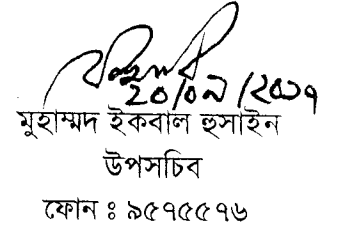 ২০/০৯/২০১৭
মুহাম্মদ ইকবাল হুসাইন
উপসচিব
ফোন : ৯৫৭৫৫৭৬